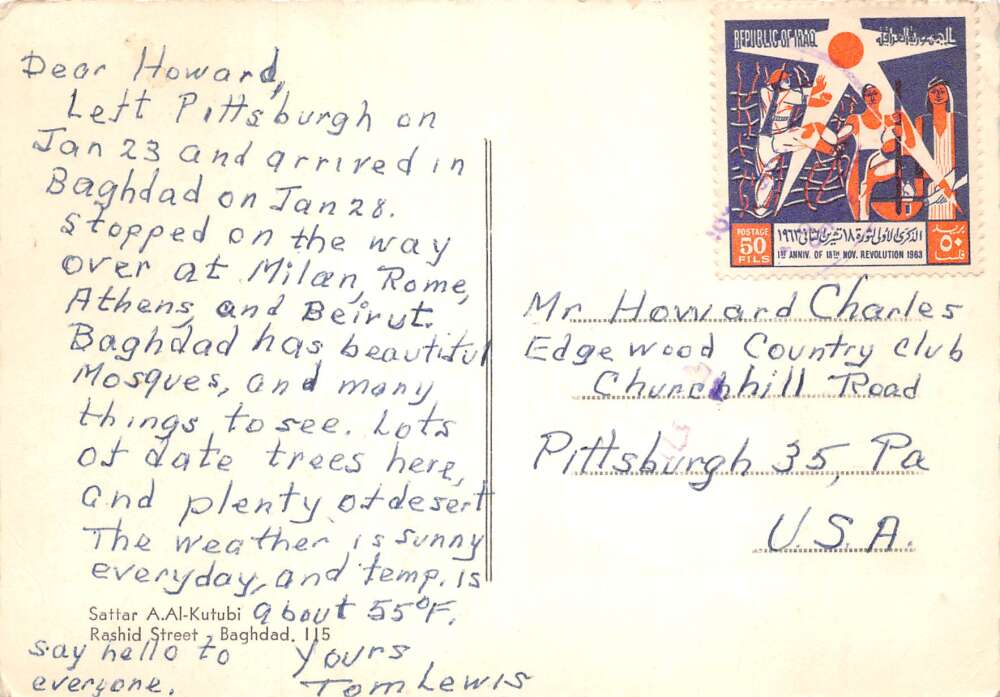 Dear Howard,
Left Pittsburgh on
Jan 23 and arrived in
Baghdad on Jan 28.
Stopped on the way
over at Milan, Rome,
Athens, and Beirut.
Baghdad has beautiful
Mosques, and many
things to see. Lots
of date trees here,
and plenty of desert
The weather is sunny
everyday, and temp. is
about 55°F.
say hello to
everyone.
Yours
Tom Lewis
Sattar A.Al-Kutubi
Rashid Street - Baghdad. 115
REPUBLIC OF IRAQ
الجمهورية العراقية
الذكرى الأولى لثورة ١٨ تشرين الثاني ١٩٦٣
1ST ANNIV. OF 18TH NOV. REVOLUTION 1963
POSTAGE
50
FILS
بريد
٥٠
فلسا
Mr Howard Charles
Edgewood Country Club
Churchhill Road
Pittsburgh 35, Pa
U.S.A.